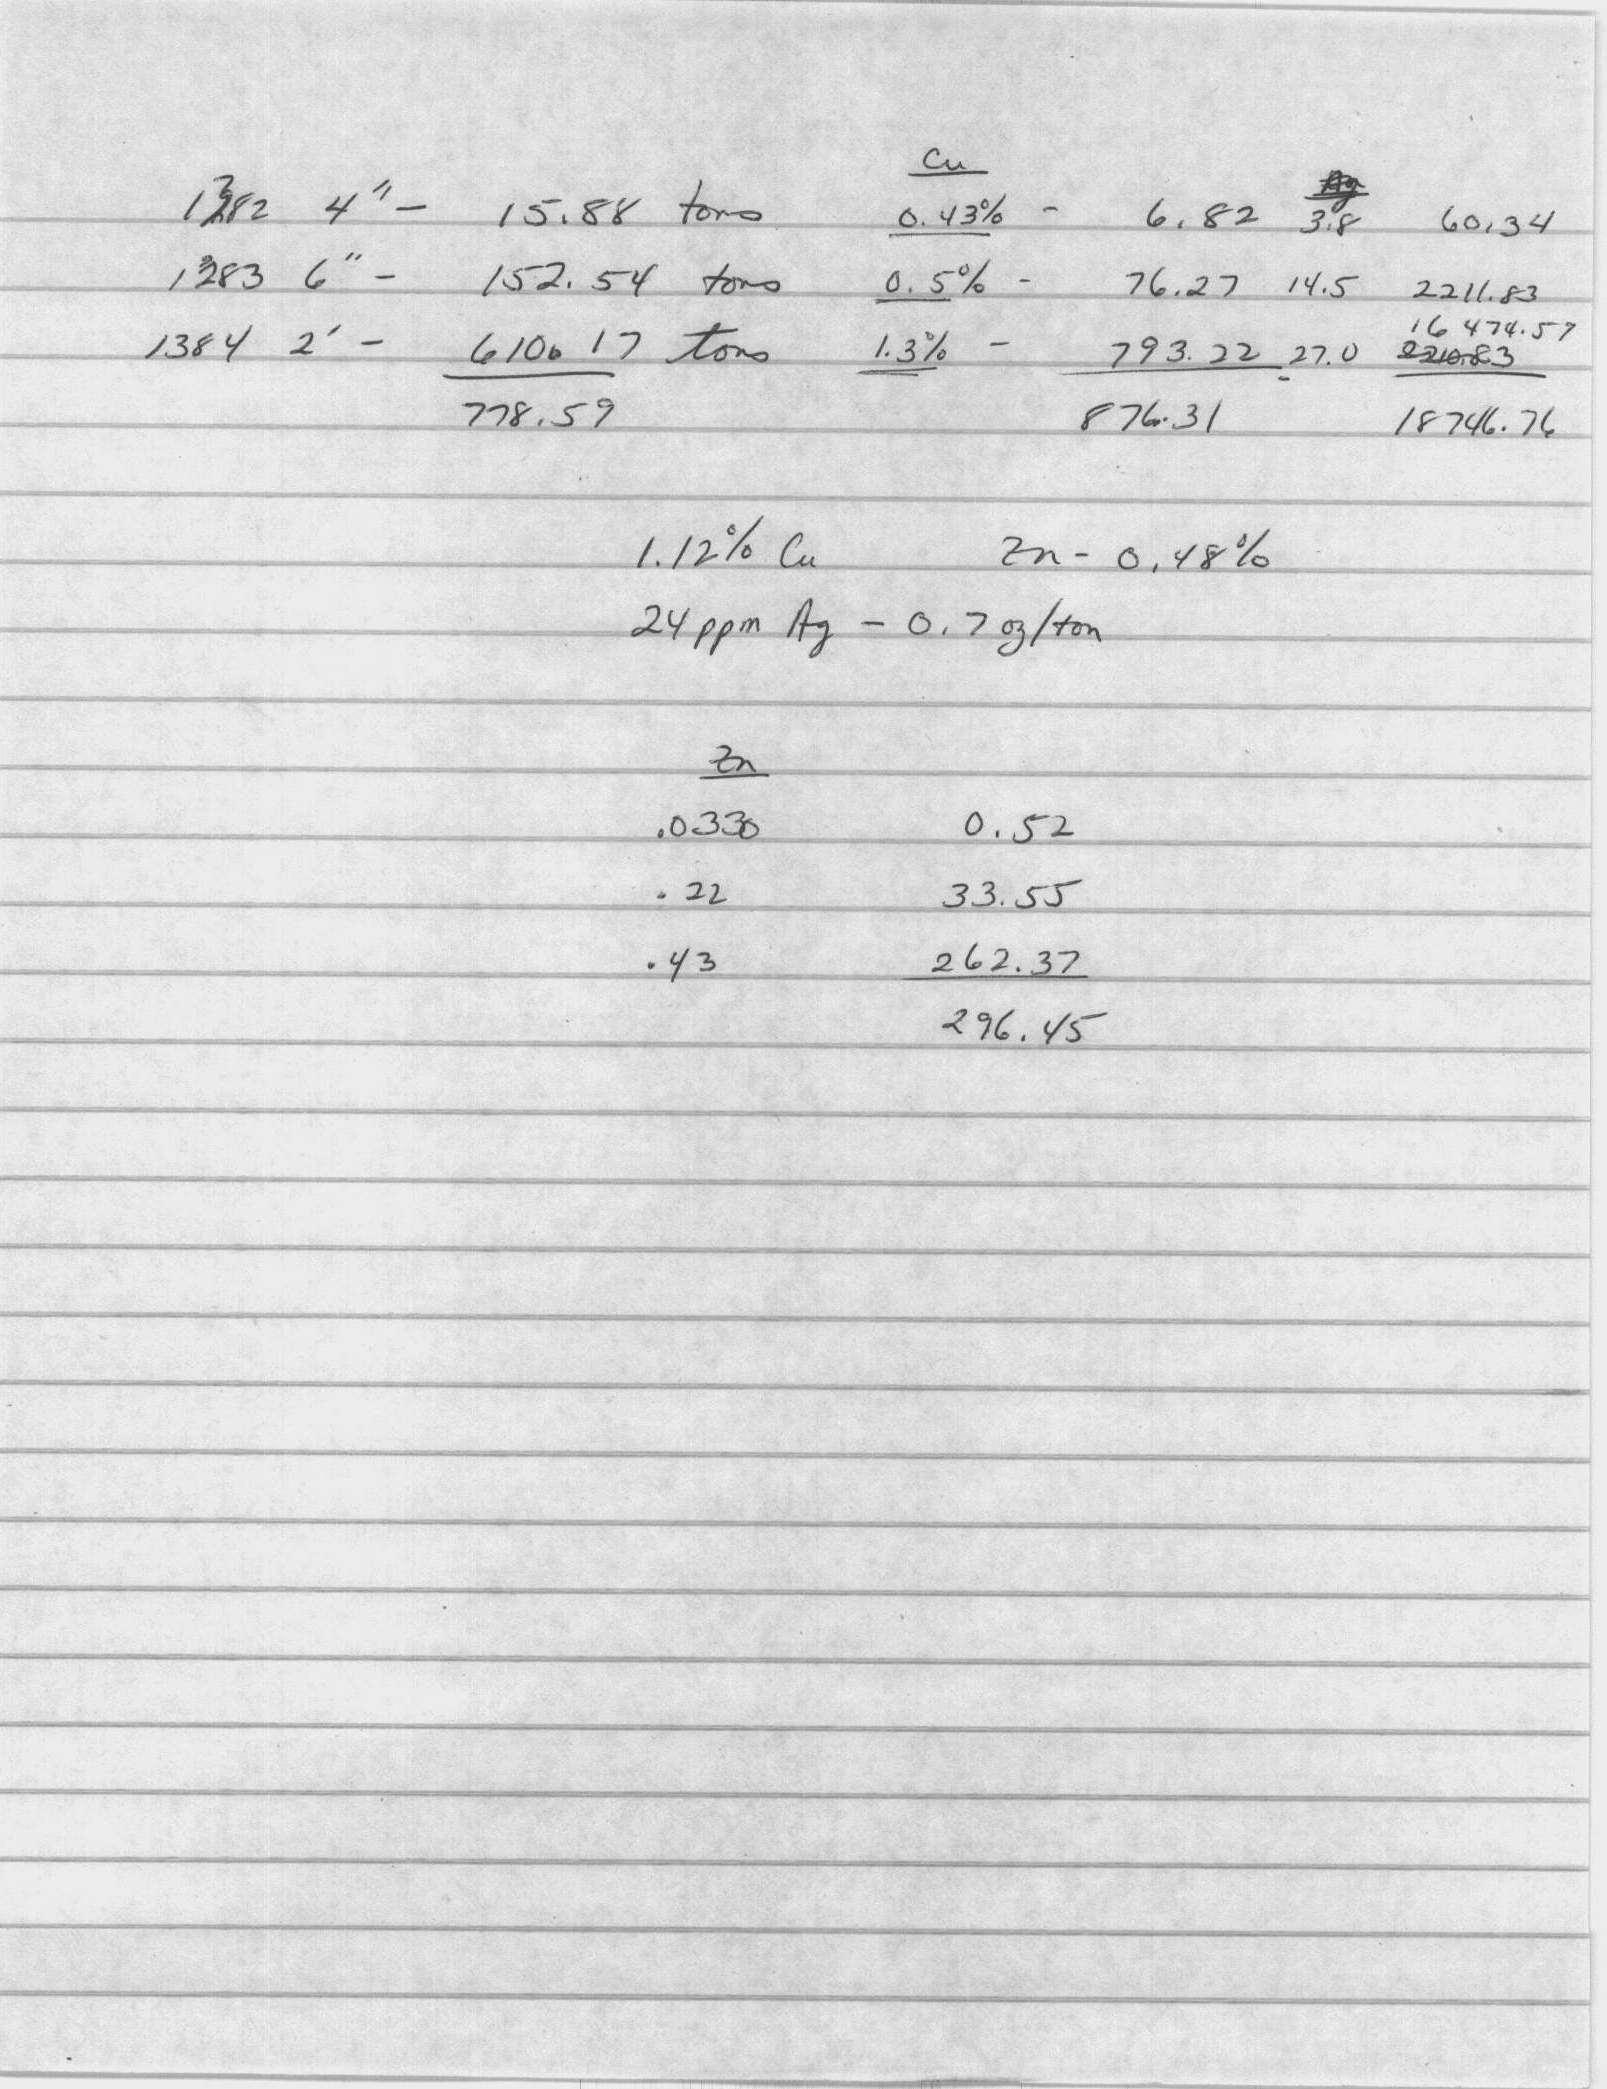 Cu Ag
1382 4" - 15.88 tons 0.43% - 6.82 3.8 60.34
1383 6" - 152.54 tons 0.5% - 76.27 14.5 2211.83
16 474.57
1384 2' - 610.17 tons 1.3% - 793.22 27.0
778.59 876.31 18746.76
1.12% Cu Zn - 0.48%
24 ppm Ag - 0.7 oz/ton
Zn
.0330 0.52
.22 33.55
.43 262.37
296.45